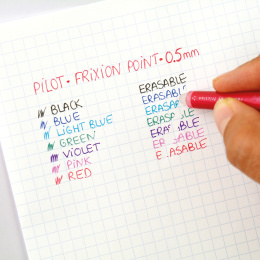 PILOT • FRIXION POINT • 0.5mm
BLACK
BLUE
LIGHT BLUE
GREEN
VIOLET
PINK
RED
ERASABLE
ERASABL
ERASAB
ERASABLE
ERA ABLE
ERA ABLE
E ASABLE